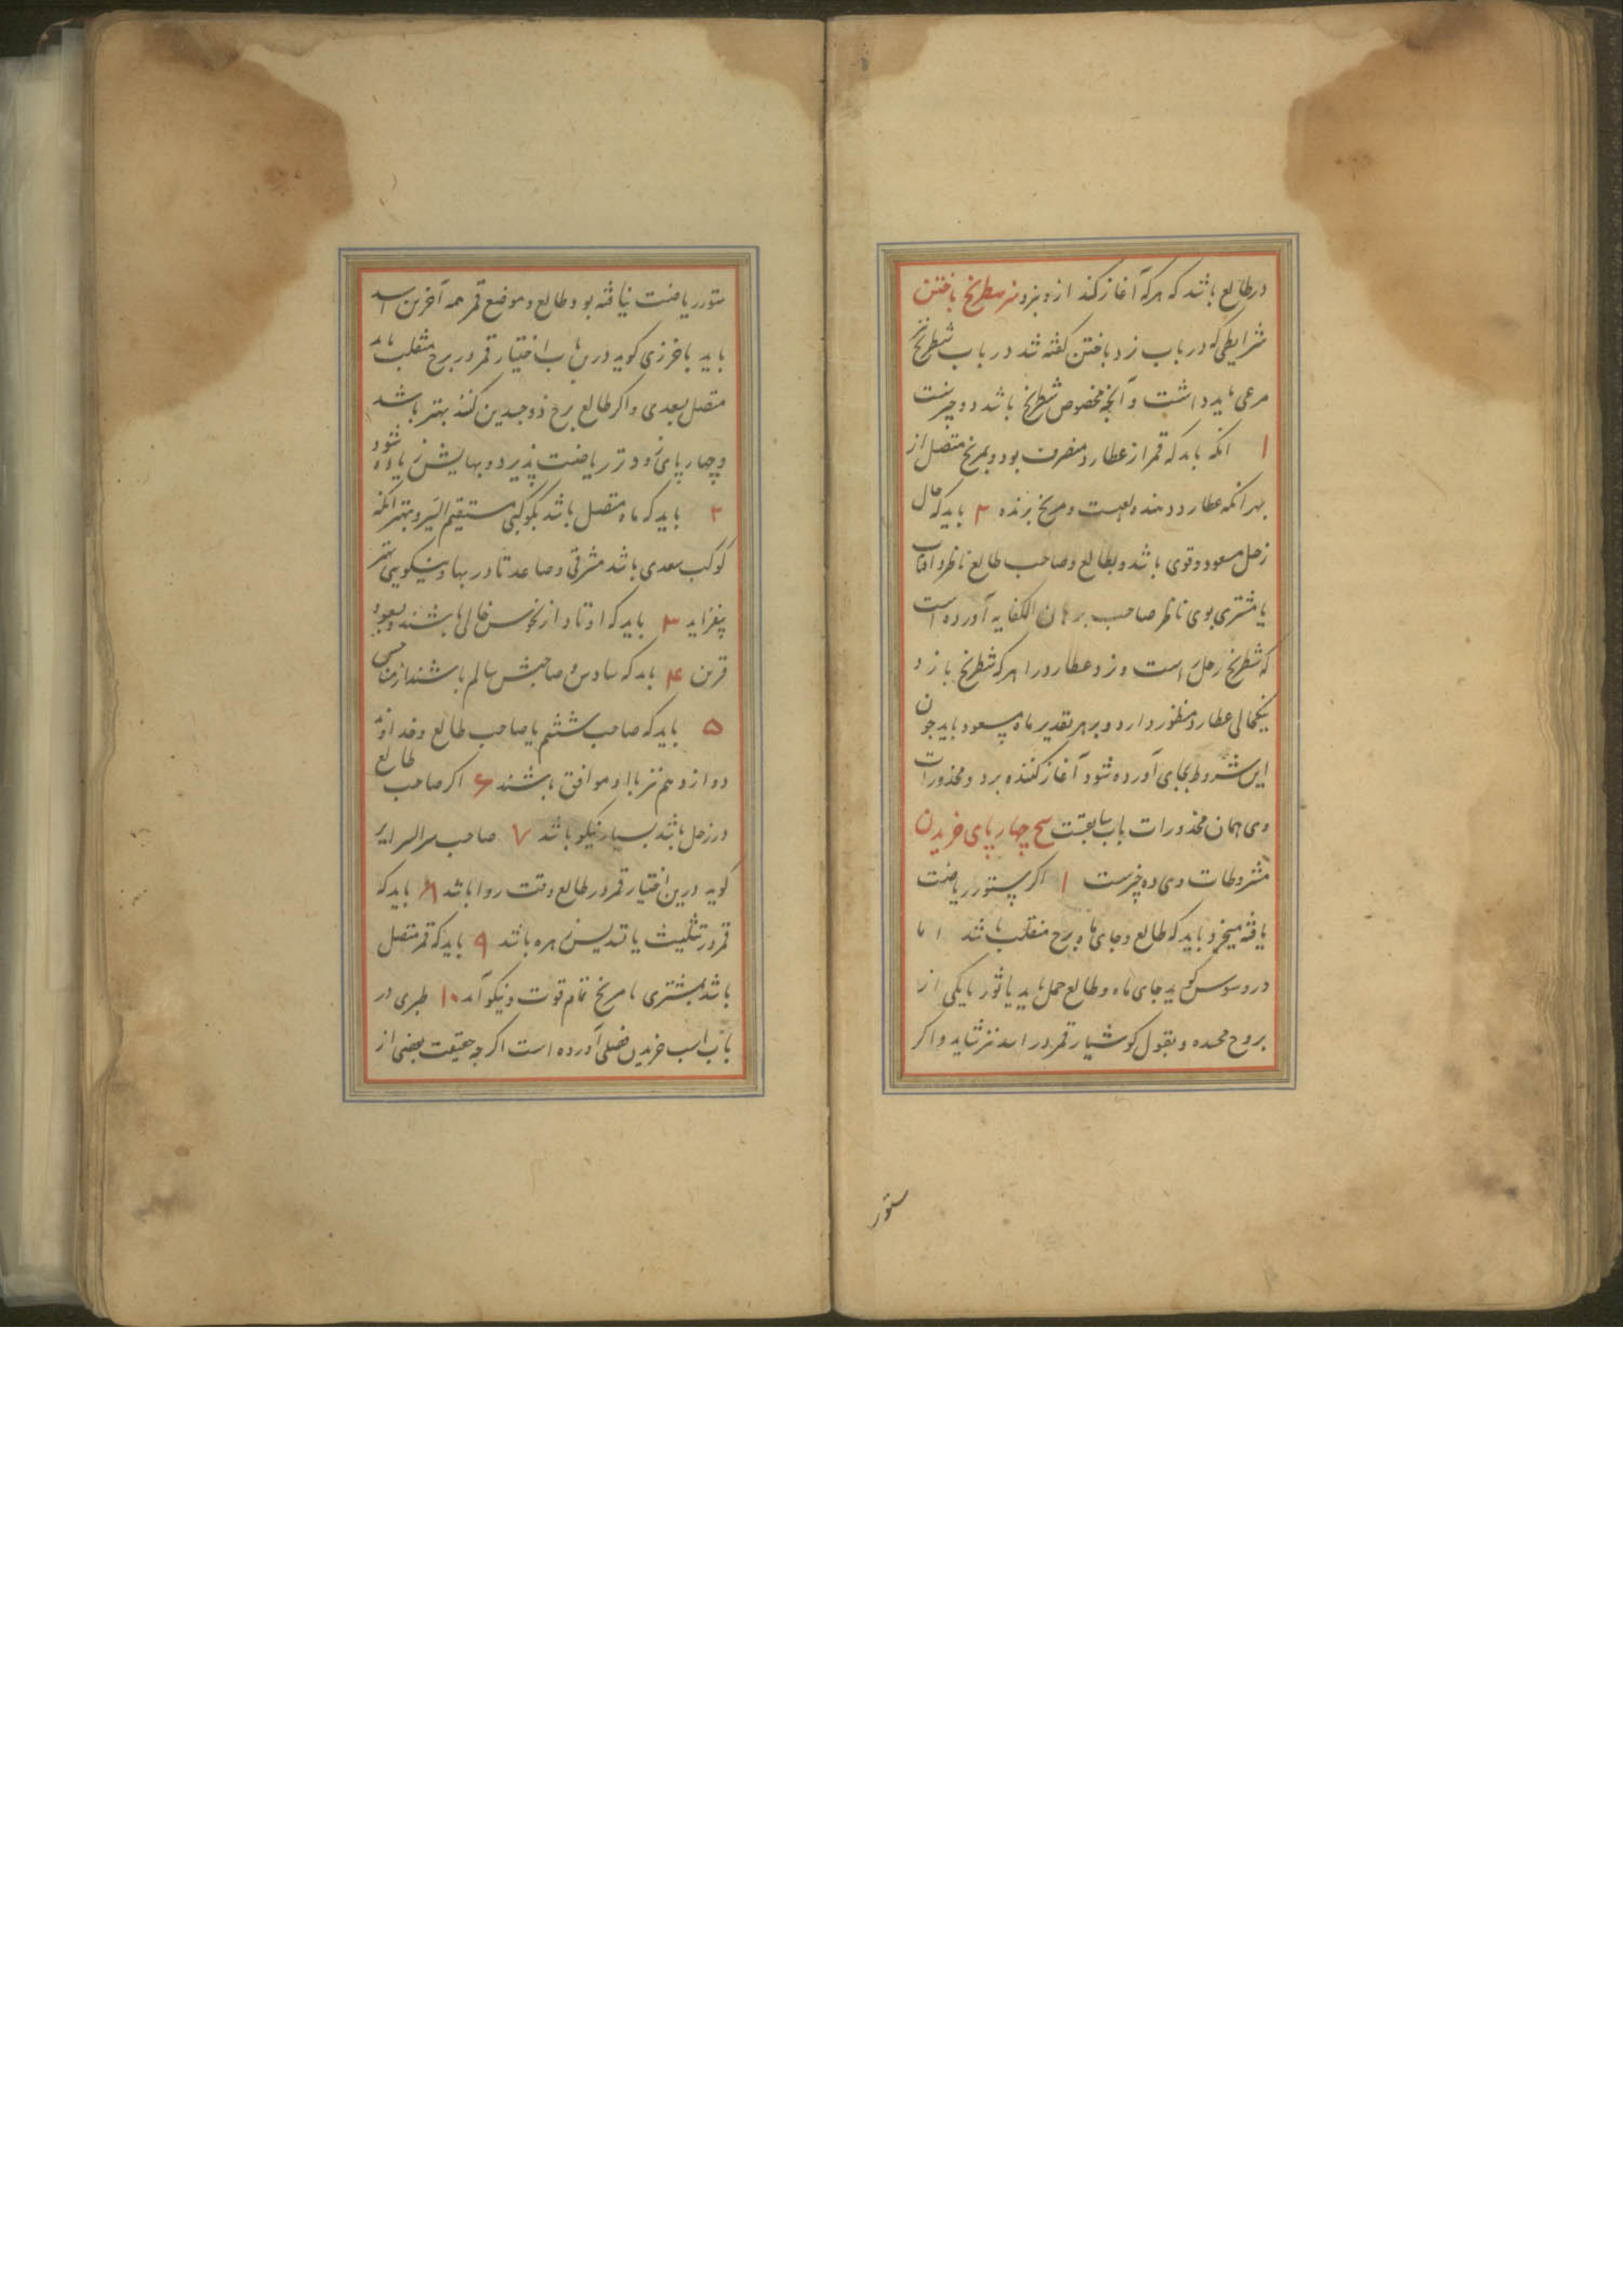 در طالع باشد که هرکه آغاز کند ازو برد شطرنج باختن
شرایطی که در باب نرد باختن کفته شد در باب شطرنج نیز
مرعی باید داشت و آنچه مخصوص شطرنج باشد دو چیزست
۱ انکه باید که قمر از عطارد منصرف بود و بمریخ متصل از
بهر انکه عطارد دهنده لعبست و مریخ برنده ۲ باید که حال
زحل مسعود و قوی باشد و بطالع و صاحب طالع ناظر و آفتاب
یا مشتری بوی ناظر صاحب برهان الکفایه آورده است
که شطرنج زحل راست و نرد عطارد را هرکه شطرنج بازد
نیکحالی عطارد منظور دارد و بر هر تقدیر ماه مسعود باید چون
این شروط بجای آورده شود آغاز کننده برد و محذورات
وی همان محذورات باب سابقست چارپای خریدن
مشروطات وی ده چیزست ۱ اکر ستور ریاضت
یافته میخرد باید که طالع و جای ماه برج منقلب باشد اما
دروسوس کوید جای ماه و طالع حمل باید یا ثور یا یکی از
بروج مجسده و بقول کوشیار قمر در اسد نیز شاید و اکر
ستور
ستور ریاضت نیافته بود طالع و موضع قمر همه آخرین اسد
باید باخرزی کوید درین باب اختیار قمر در برج منقلب باید
متصل بسعدی و اکر طالع برج ذوجسدین کنند بهتر باشد
و چهارپای زودتر ریاضت پذیرد و بهایش زیاده شود
۲ باید که ماه متصل باشد بکوکبی مستقیم السیر و بهتر انکه
کوکب سعدی باشد مشرقی و صاعد تا در بها و نیکویی ستور
بیفزاید ۳ باید که اوتاد از نحوس خالی باشند و بسعود
قرین ۴ باید که سادس و صاحبش سالم باشند از مناحس
۵ باید که صاحب ششم یا صاحب طالع و خداوند
دوازدهم نیز با او موافق باشند ۶ اکر صاحب طالع
در زحل باشد بسیار نیکو باشد ۷ صاحب سرالسرایر
کوید درین اختیار قمر در طالع وقت روا باشد ۸ باید که
قمر در تثلیث یا تسدیس زهره باشد ۹ باید که قمر متصل
باشد بمشتری با مریخ تمام قوت و نیکو آید ۱۰ طبری در
باب اسب خریدن فصلی آورده است اکرچه حقیقت بعضی از